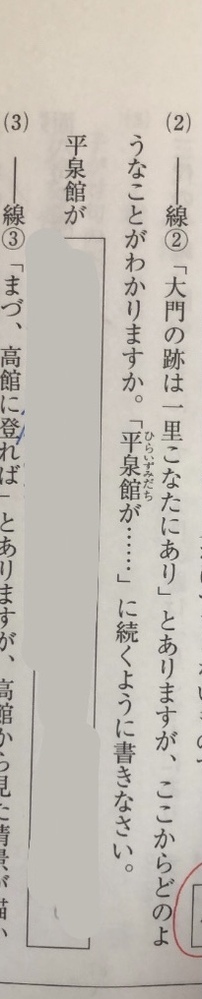 (2) ――線②「大門の跡は一里こなたにあり」とありますが、ここからどのよ
うなことがわかりますか。「平泉館が……」に続くように書きなさい。
ひらいずみだち
平泉館が
(3) ――線③「まづ、高館に登れば」とありますが、高館から見た情景が描か